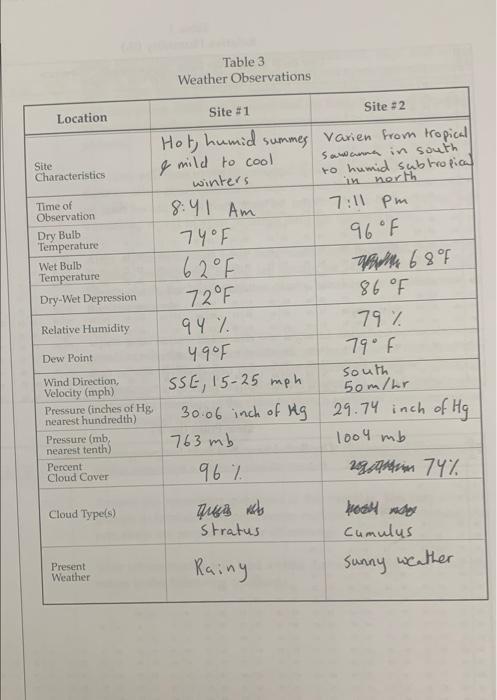 Table 3
Weather Observations
Location Site #1 Site #2
Site Characteristics Hot, humid summes & mild to cool winters Varien from tropical sawanna in south to humid subtropical in north
Time of Observation 8:41 Am 7:11 Pm
Dry Bulb Temperature 74°F 96°F
Wet Bulb Temperature 62°F 68°F
Dry-Wet Depression 72°F 86°F
Relative Humidity 94% 79%
Dew Point 49°F 79°f
Wind Direction, Velocity (mph) SSE, 15-25 mph south 50m/hr
Pressure (inches of Hg, nearest hundredth) 30.06 inch of Mg 29.74 inch of Hg
Pressure (mb, nearest tenth) 763 mb 1004 mb
Percent Cloud Cover 96% 74%
Cloud Type(s) Stratus Cumulus
Present Weather Rainy Sunny weather